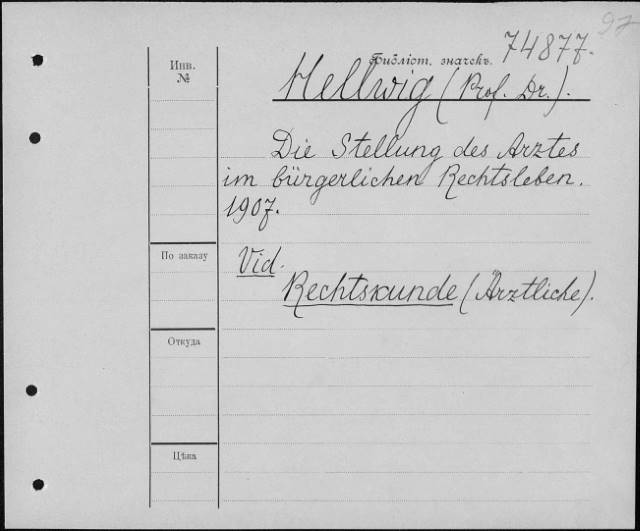 97
74877.
Инв.
№
Библіот. значекъ.
Hellwig (Prof. Dr.).
Die Stellung des Arztes
im bürgerlichen Rechtsleben.
1907.
По заказу
Vid.
Rechtskunde (Ärztliche).
Откуда
Цѣна